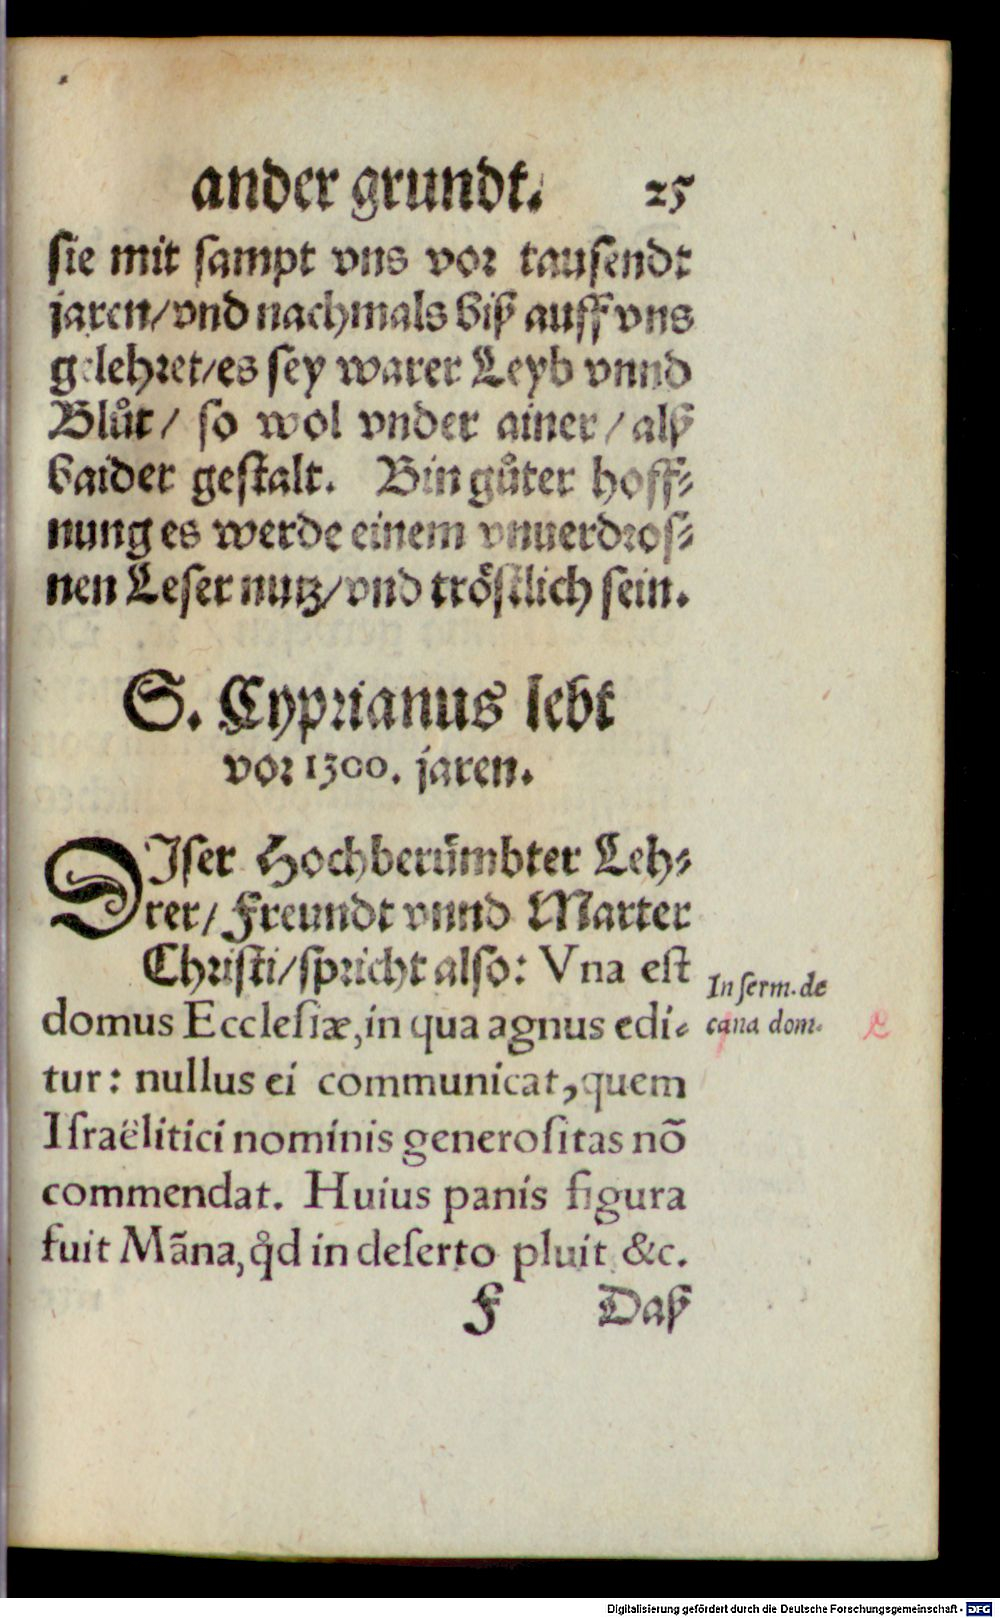 ander grundt. 25
sie mit sampt vns vor tausendt
jaren/vnd nachmals biß auff vns
gelehret/es sey warer Leyb vnnd
Blůt/ so wol vnder ainer/ alß
baider gestalt. Bin gůter hoff⸗
nung es werde einem vnuerdros⸗
nen Leser nutz/vnd tröstlich sein.
S. Cyprianus lebt
vor 1300. jaren.
DIser Hochberümbter Leh⸗
rer/ Freundt vnnd Marter
Christi/spricht also: Vna est
domus Ecclesiæ,in qua agnus edi⸗
tur: nullus ei communicat,quem
Israëlitici nominis generositas nõ
commendat. Huius panis figura
fuit Mãna, qd̊ in deserto pluit &c.
In serm. de
cœna dom.
F Daß
Digitalisierung gefördert durch die Deutsche Forschungsgemeinschaft - DFG